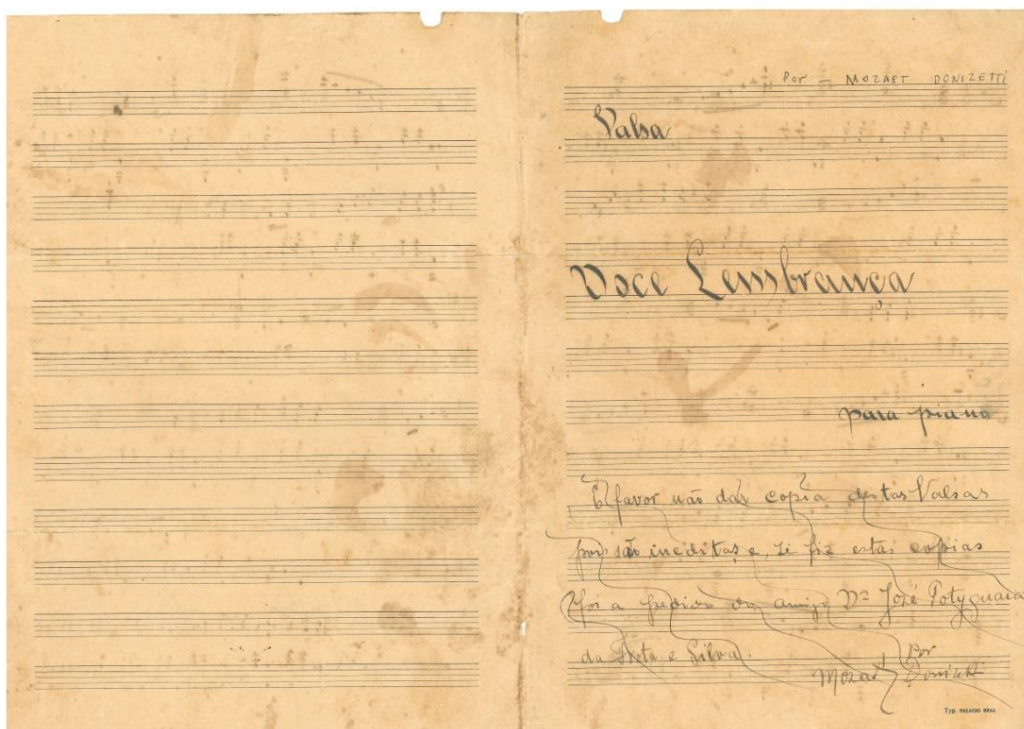 Por — MOZART DONIZETTI
Valsa
Doce Lembrança
para piano
É favor não dar copia destas Valsas
pois são ineditas e, se fiz estas copias
foi a pedido do amigo Dr José Potyguara
da Frota e Silva.
Por
Mozart Donizetti
Typ. PALACIO REAL